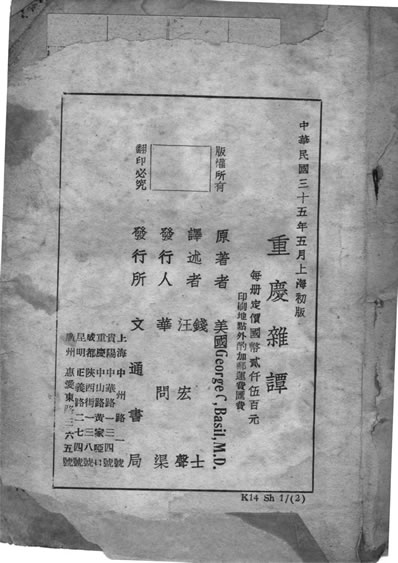 中華民國三十五年五月上海初版
重慶雜譚
每册定價國幣貳仟伍百元
印刷地點外酌加郵運費匯費
版權所有
翻印必究
原著者 美國George C, Basil, M.D.
譯述者 錢士
汪宏聲
發行人 華問渠
發行所 文通書局
上海中州路一
貴陽中華路一三四號
重慶中山路黃家埡口
成都陝西街一三八號
昆明正義路二七四號
廣州惠愛東路三六五號
K14 Sh 1/(2)